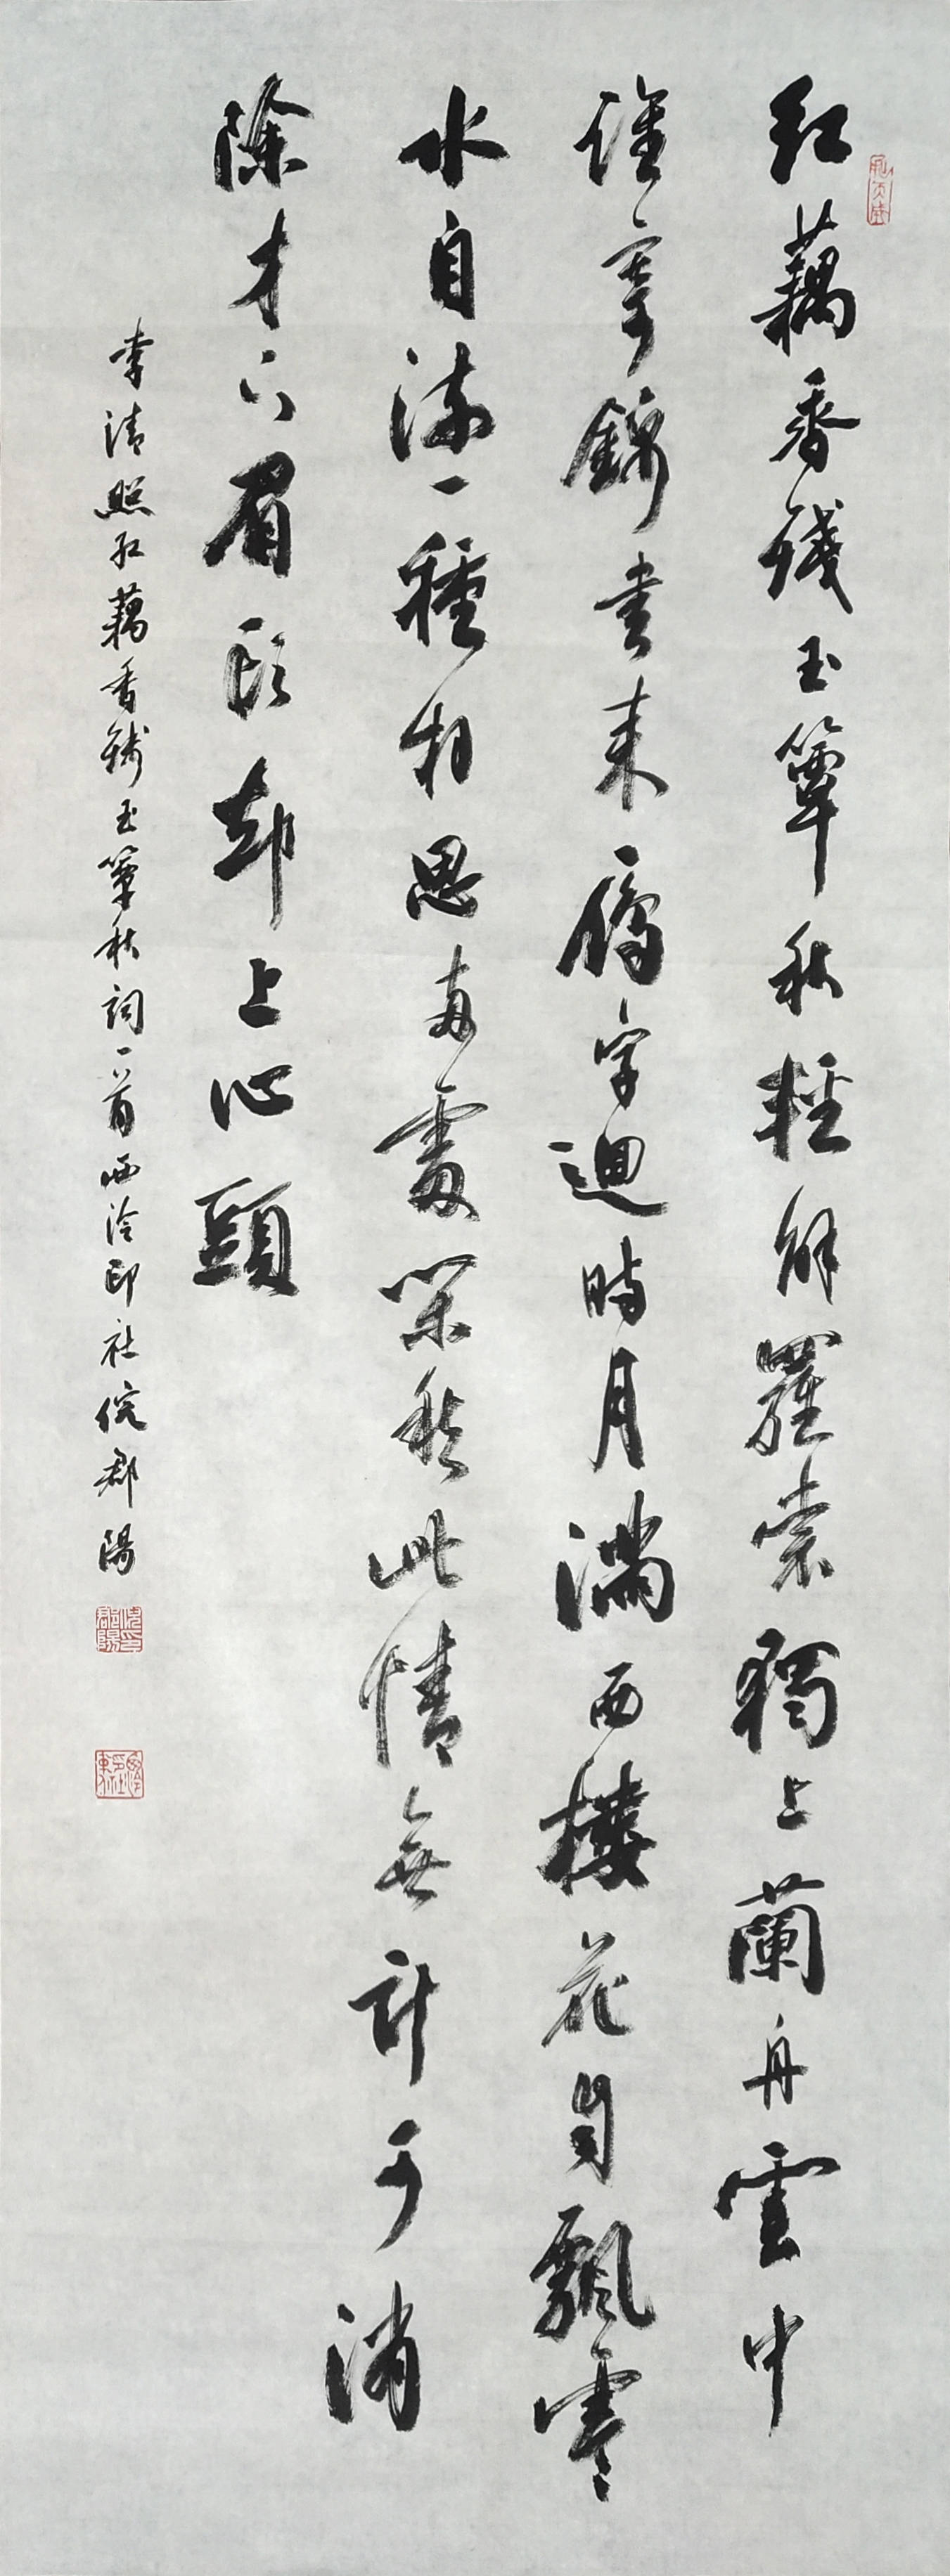 紅藕香残玉簟秋輕解羅裳獨上蘭舟雲中
誰寄錦書来雁字迴時月滿西樓花自飄零
水自流一種相思兩處閑愁此情無計可消
除才下眉頭却上心頭
李清照紅藕香残玉簟秋詞一首西泠印社倪郡陽